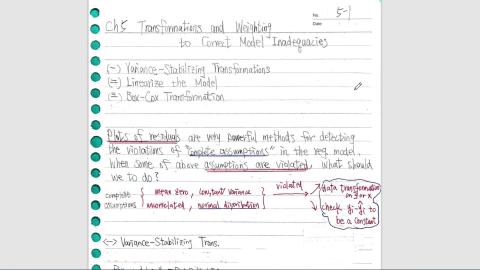 No. 5-1
Date
Ch5 Transformations and Weighting
to Correct Model Inadequacies
(一) Variance-Stabilizing Transformations
(二) Linearize the Model
(三) Box-Cox Transformation
Plots of residuals are very powerful methods for detecting
the violations of "complete assumptions" in the reg. model.
When some of above assumptions are violated, what should
we to do?
complete assumptions { mean zero, constant variance
uncorrelated, normal distribution }
violated
data transformation
on y or x
check yi-ŷi to
be a constant
<一> Variance-Stabilizing Trans.